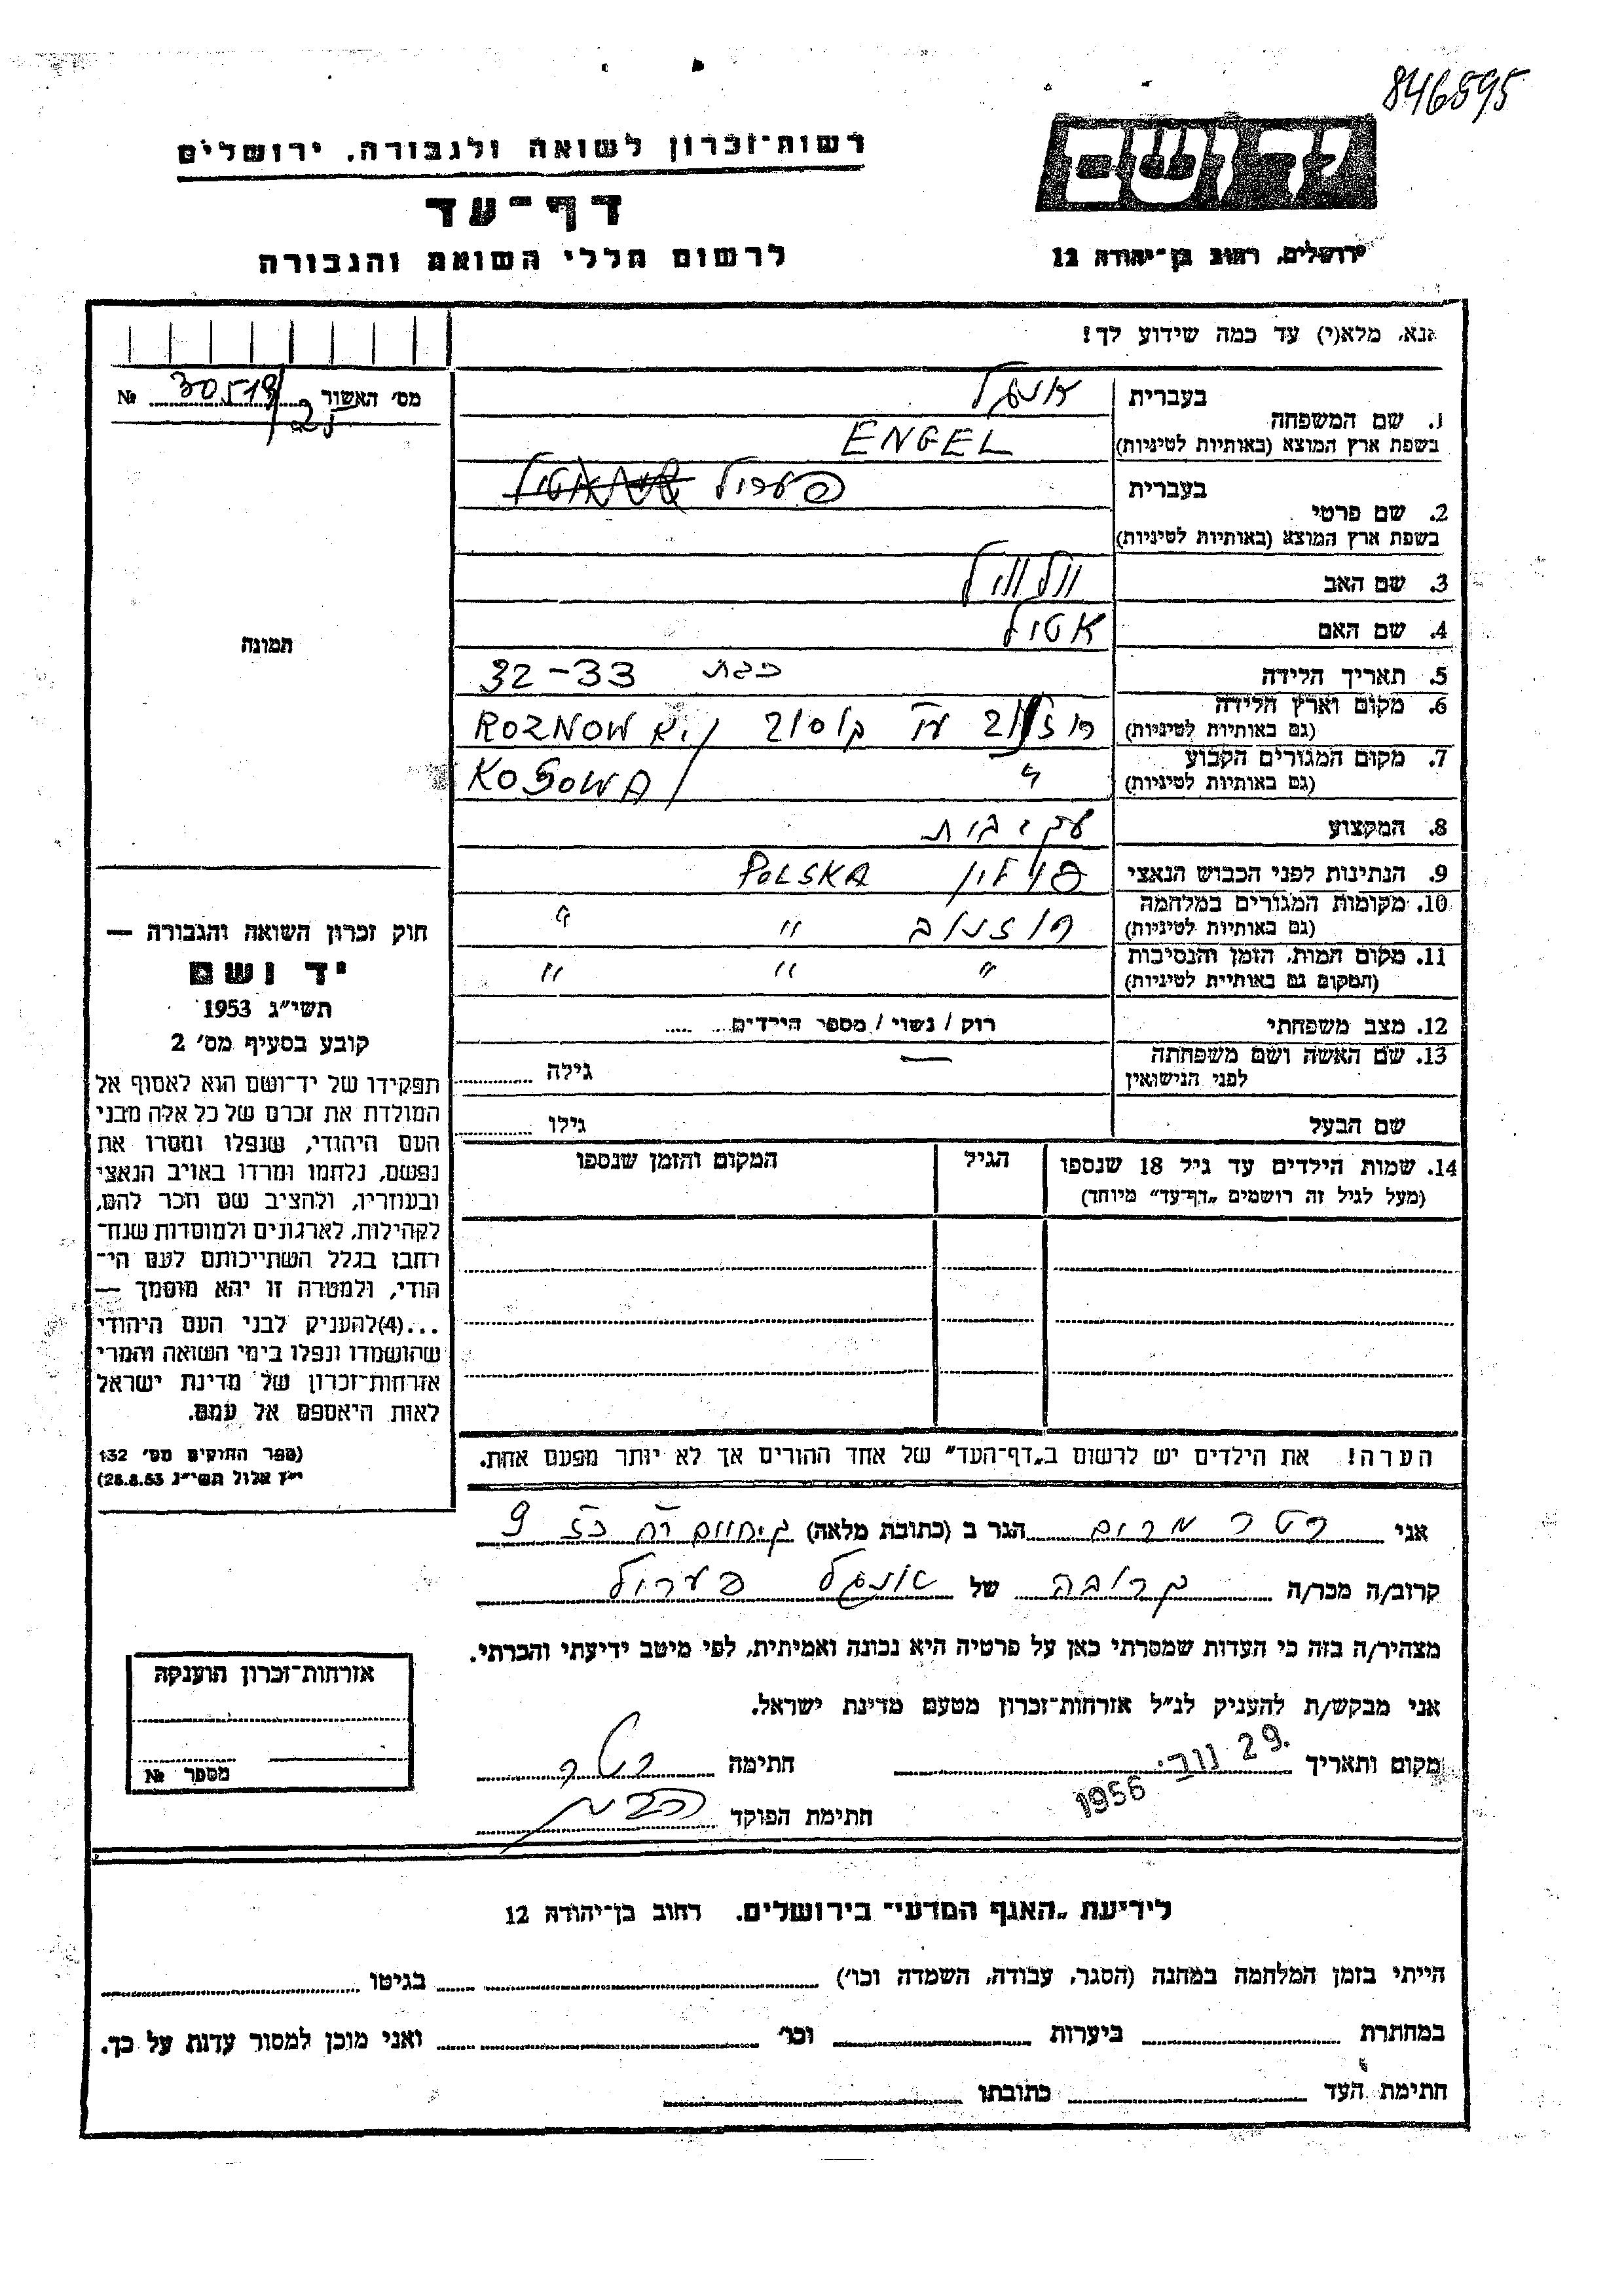 846595
רשות־זכרון לשואה ולגבורה, ירושלים
דף־עד
לרשום חללי השואה והגבורה
יד ושם
ירושלים, רחוב בן־יהודה 12
אנא, מלא(י) עד כמה שידוע לך!
מס׳ האשור 30519/25 №
1. שם המשפחה בעברית אנגל
בשפת ארץ המוצא (באותיות לטיניות) ENGEL
2. שם פרטי בעברית פערול
בשפת ארץ המוצא (באותיות לטיניות)
3. שם האב וולוויל
4. שם האם אטיל
5. תאריך הלידה כבת 32-33
6. מקום וארץ הלידה (גם באותיות לטיניות) רוזנוב על קוסוב ROZNOW
7. מקום המגורים הקבוע (גם באותיות לטיניות) " KOSOWA
8. המקצוע עק׳ בית
9. הנתינות לפני הכבוש הנאצי פולין POLSKA
10. מקומות המגורים במלחמה (גם באותיות לטיניות) רוזנוב " "
11. מקום המות, הזמן והנסיבות (המקום גם באותיית לטיניות) " " "
12. מצב משפחתי רוק / נשוי / מספר הילדים
13. שם האשה ושם משפחתה לפני הנישואין — גילה
שם הבעל גילו
14. שמות הילדים עד גיל 18 שנספו הגיל המקום והזמן שנספו
(מעל לגיל זה רושמים „דף־עד״ מיוחד)
הערה! את הילדים יש לרשום ב„דף־העד״ של אחד ההורים אך לא יותר מפעם אחת.
תמונה
חוק זכרון השואה והגבורה —
יד ושם
תשי״ג 1953
קובע בסעיף מס׳ 2
תפקידו של יד־ושם הוא לאסוף אל
המולדת את זכרם של כל אלה מבני
העם היהודי, שנפלו ומסרו את
נפשם, נלחמו ומרדו באויב הנאצי
ובעוזריו, ולהציב שם וזכר להם,
לקהילות, לארגונים ולמוסדות שנח־
רחבו בגלל השתייכותם לעם הי־
הודי, ולמטרה זו יהא מוסמך —
...(4)להעניק לבני העם היהודי
שהושמדו ונפלו בימי השואה והמרי
אזרחות־זכרון של מדינת ישראל
לאות היאספם אל עמם.
(ספר החוקים מס׳ 132
י״ז אלול תשי״ג 28.8.53)
אני רטר מרים הגר ב (כתובת מלאה) 9
קרוב/ה מכר/ה קרובה של אנגל פערול
מצהיר/ה בזה כי העדות שמסרתי כאן על פרטיה היא נכונה ואמיתית, לפי מיטב ידיעתי והכרתי.
אני מבקש/ת להעניק לנ״ל אזרחות־זכרון מטעם מדינת ישראל.
מקום ותאריך 29. נוב׳ 1956 חתימה רטר
חתימת הפוקד
אזרחות־זכרון הוענקה
מספר №
לידיעת „האגף המדעי״ בירושלים, רחוב בן־יהודה 12
הייתי בזמן המלחמה במחנה (הסגר, עבודה, השמדה וכו׳) בגיטו
במחתרת ביערות וכו׳ ואני מוכן למסור עדות על כך.
חתימת העד כתובתו